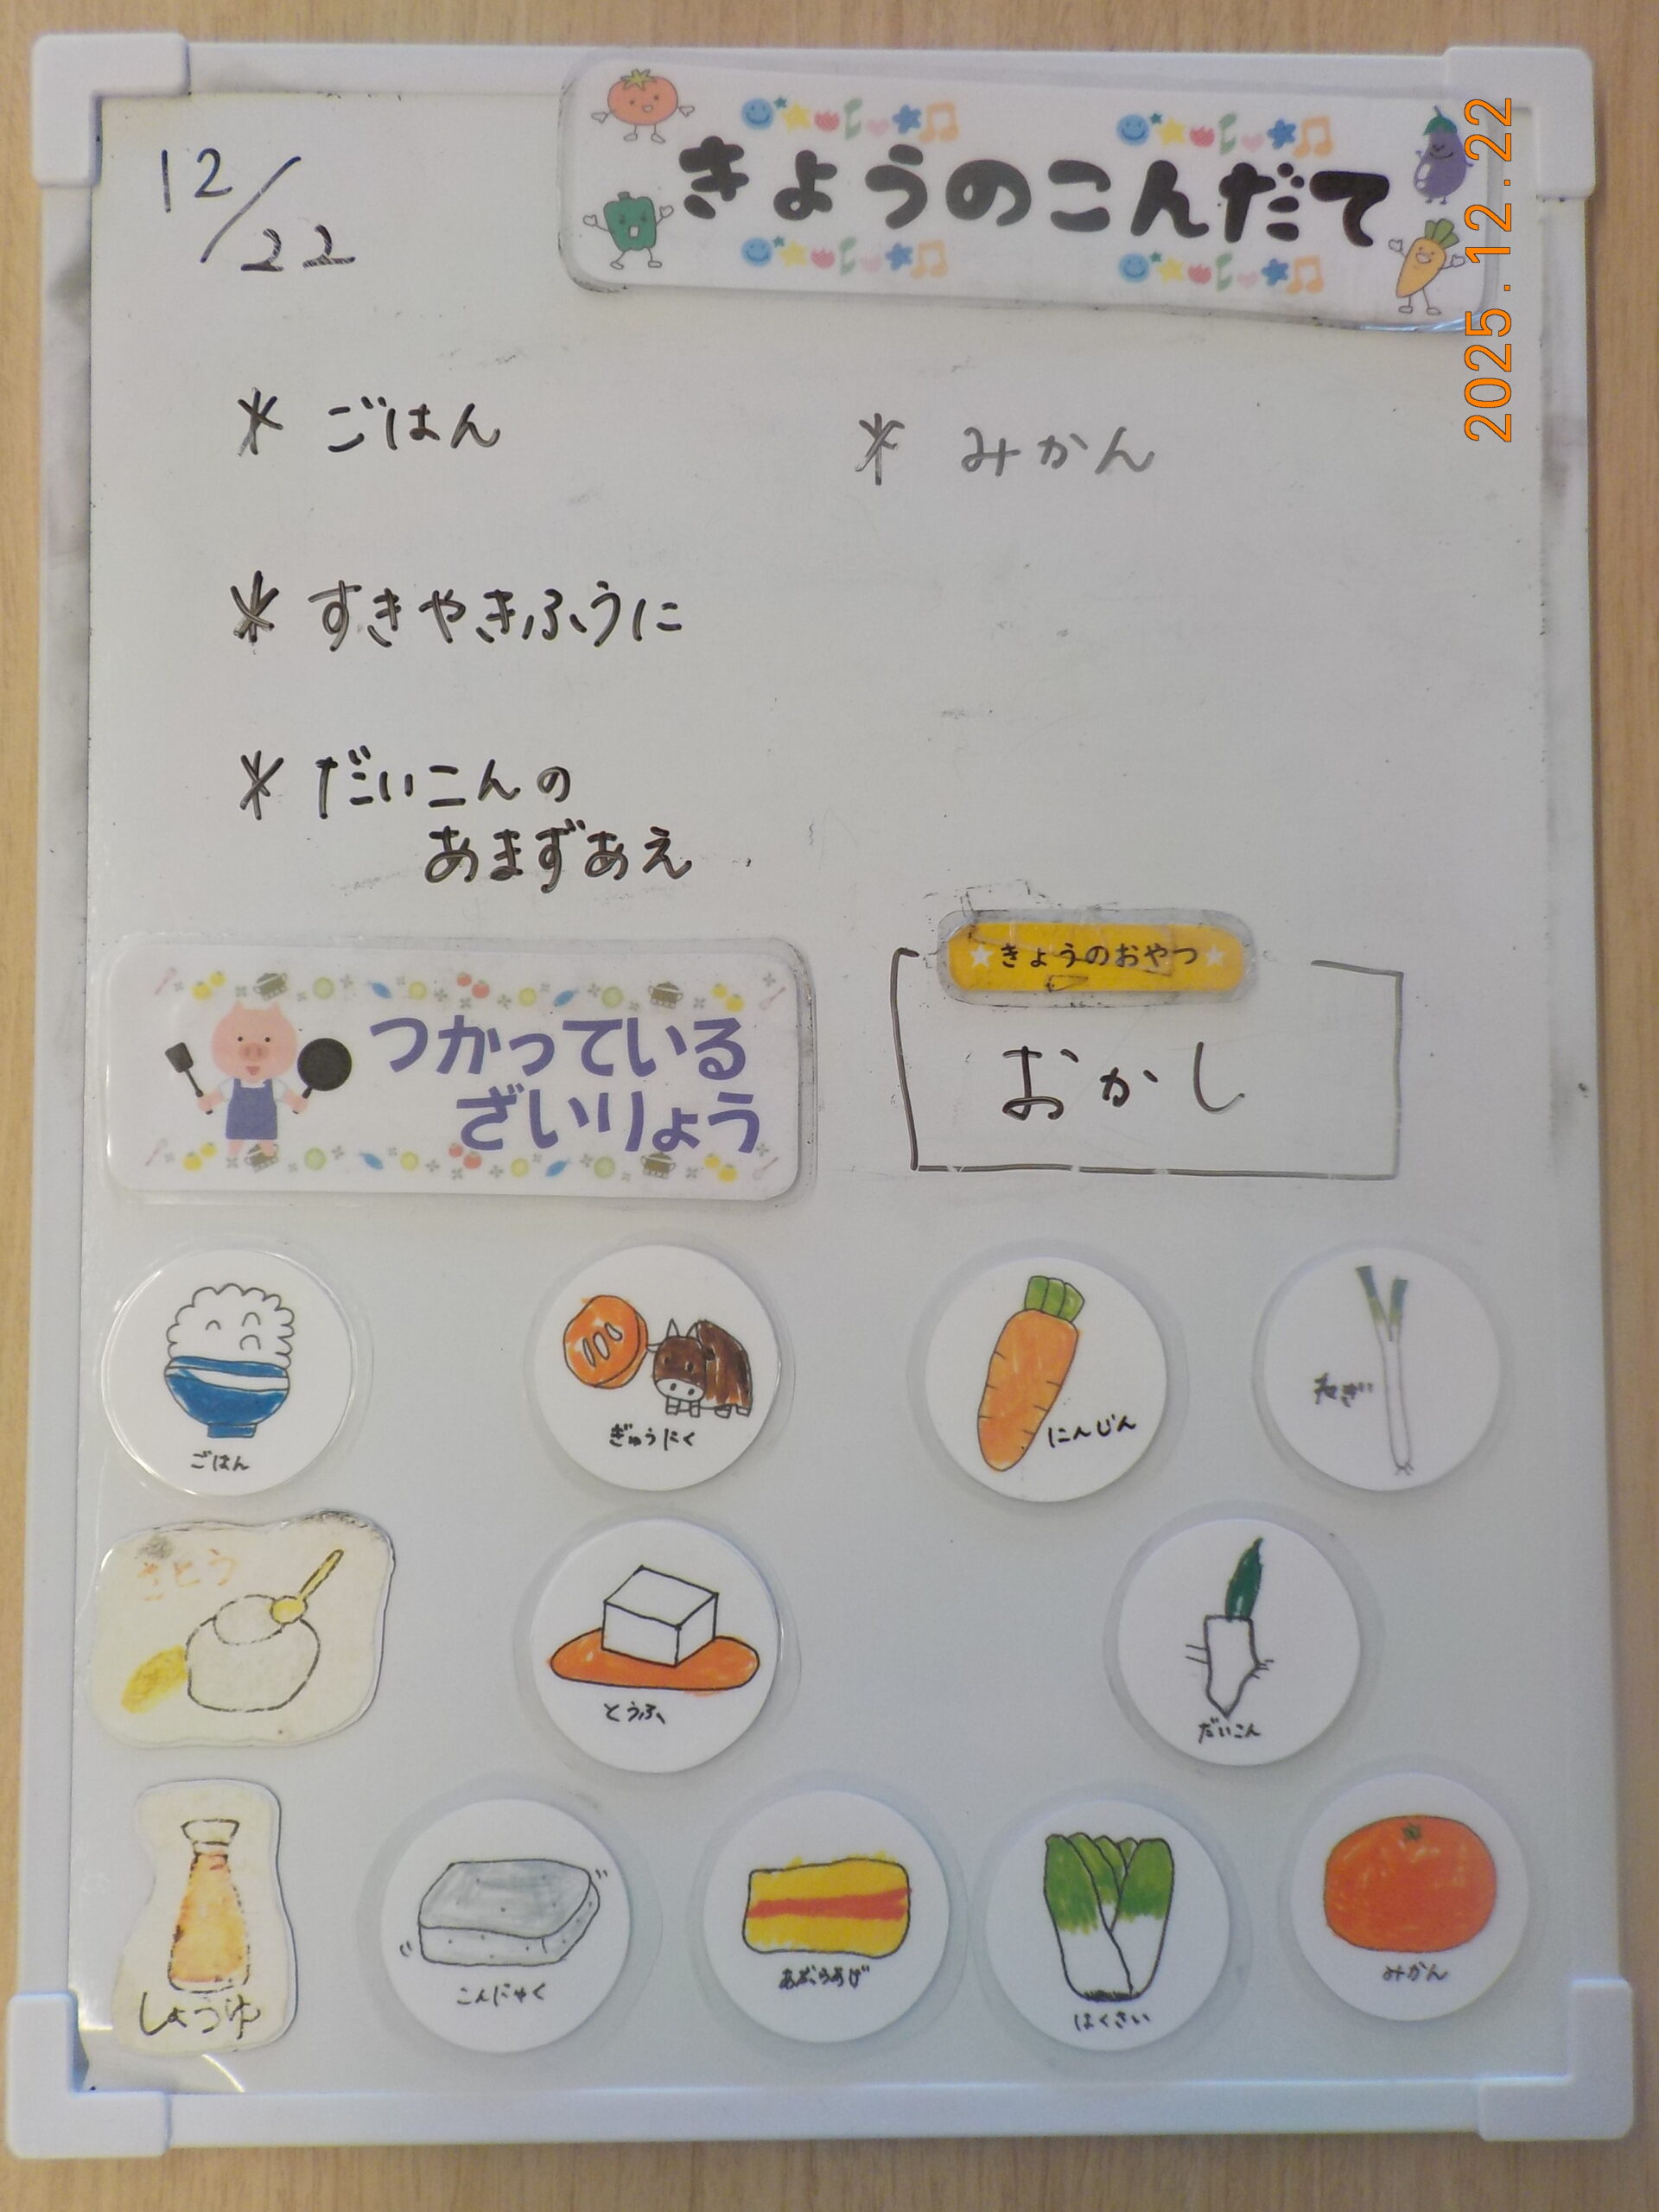 12/22
きょうのこんだて
2025.12.22
* ごはん
* みかん
* すきやきふうに
* だいこんの
あまずあえ
つかっている
ざいりょう
★きょうのおやつ★
おかし
ごはん
ぎゅうにく
にんじん
ねぎ
さとう
とうふ
だいこん
しょうゆ
こんにゃく
あぶらあげ
はくさい
みかん